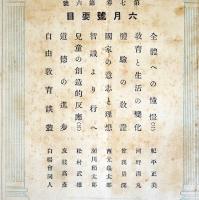 第七卷第六號
六月號要目
全體への憧憬(二) 紀平正美
教育と生活の變化 河野清丸
體驗の教證
國家の意志と理想 西元龜太郎
智識より行へ
兒童の創造的反應(三) 松村武雄
道德の進步
自由教育談叢 白楊會同人